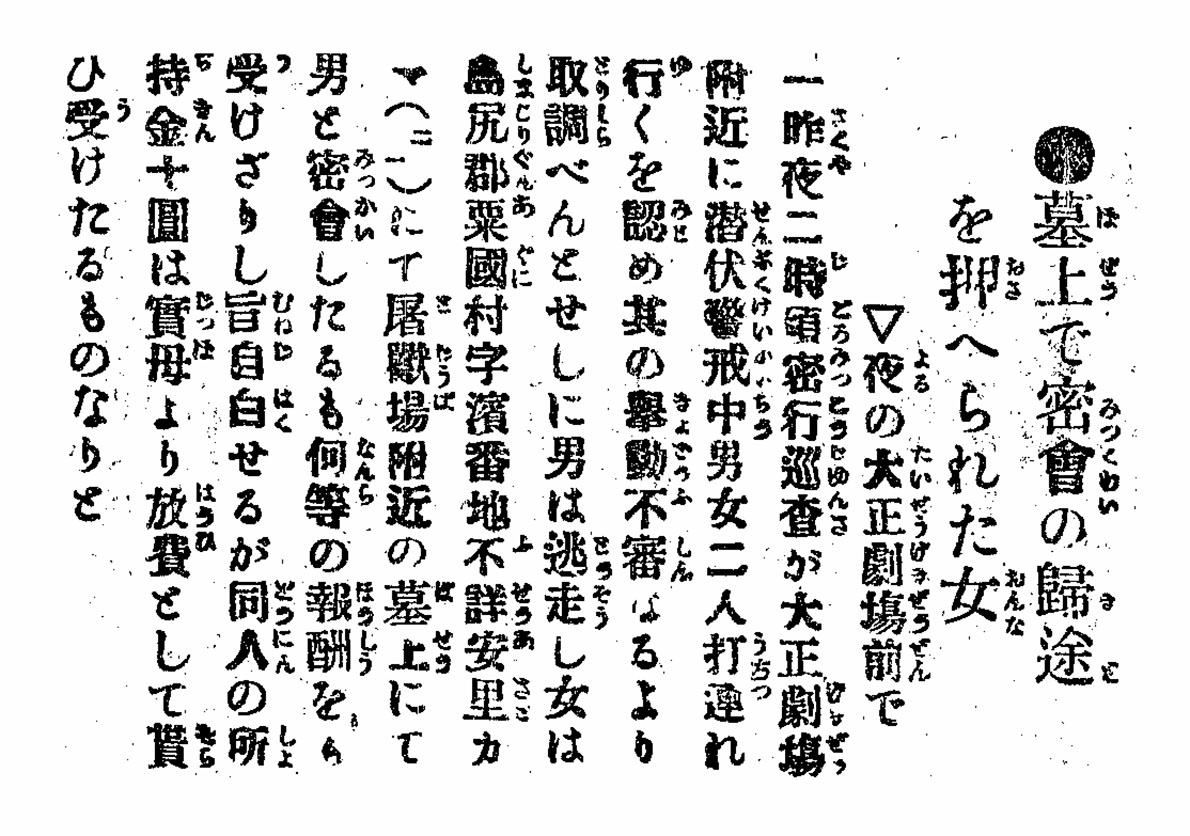 ●墓上で密會の歸途
を押へられた女
▽夜の大正劇場前で
一昨夜二時頃密行巡査が大正劇場
附近に潜伏警戒中男女二人打連れ
行くを認め其の擧動不審なるより
取調べんとせしに男は逃走し女は
島尻郡粟國村字濱番地不詳安里カ
マ(二二)にて屠獸場附近の墓上にて
男と密會したるも何等の報酬をも
受けざりし旨自白せるが同人の所
持金十圓は實母より放費として貰
ひ受けたるものなりと